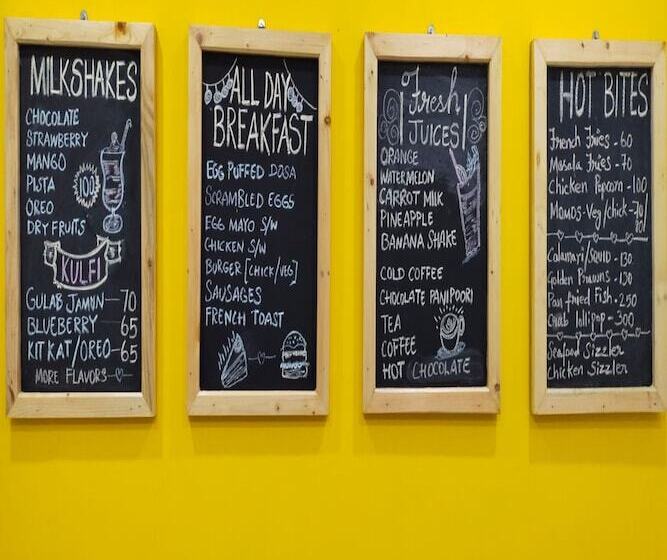 MILKSHAKES
CHOCOLATE
STRAWBERRY
MANGO
PISTA
OREO
DRY FRUITS
100
KULFI
GULAB JAMUN-70
BLUEBERRY - 65
KITKAT/OREO-65
MORE FLAVORS
ALL DAY
BREAKFAST
EGG PUFFED DOSA
SCRAMBLED EGGS
EGG MAYO S/W
CHICKEN S/W
BURGER [CHICK/VEG]
SAUSAGES
FRENCH TOAST
Fresh
JUICES
ORANGE
WATERMELON
CARROT MILK
PINEAPPLE
BANANA SHAKE
COLD COFFEE
CHOCOLATE PANIPOORI
TEA
COFFEE
HOT CHOCOLATE
HOT BITES
French Fries - 60
Masala Fries - 70
Chicken Popcorn - 100
Momos-Veg/chick-70/
80/
Calamari/SQUID - 130
Golden Prawns - 150
Pan fried Fish - 250
Crab lollipop - 300
Seafood Sizzler
Chicken Sizzler